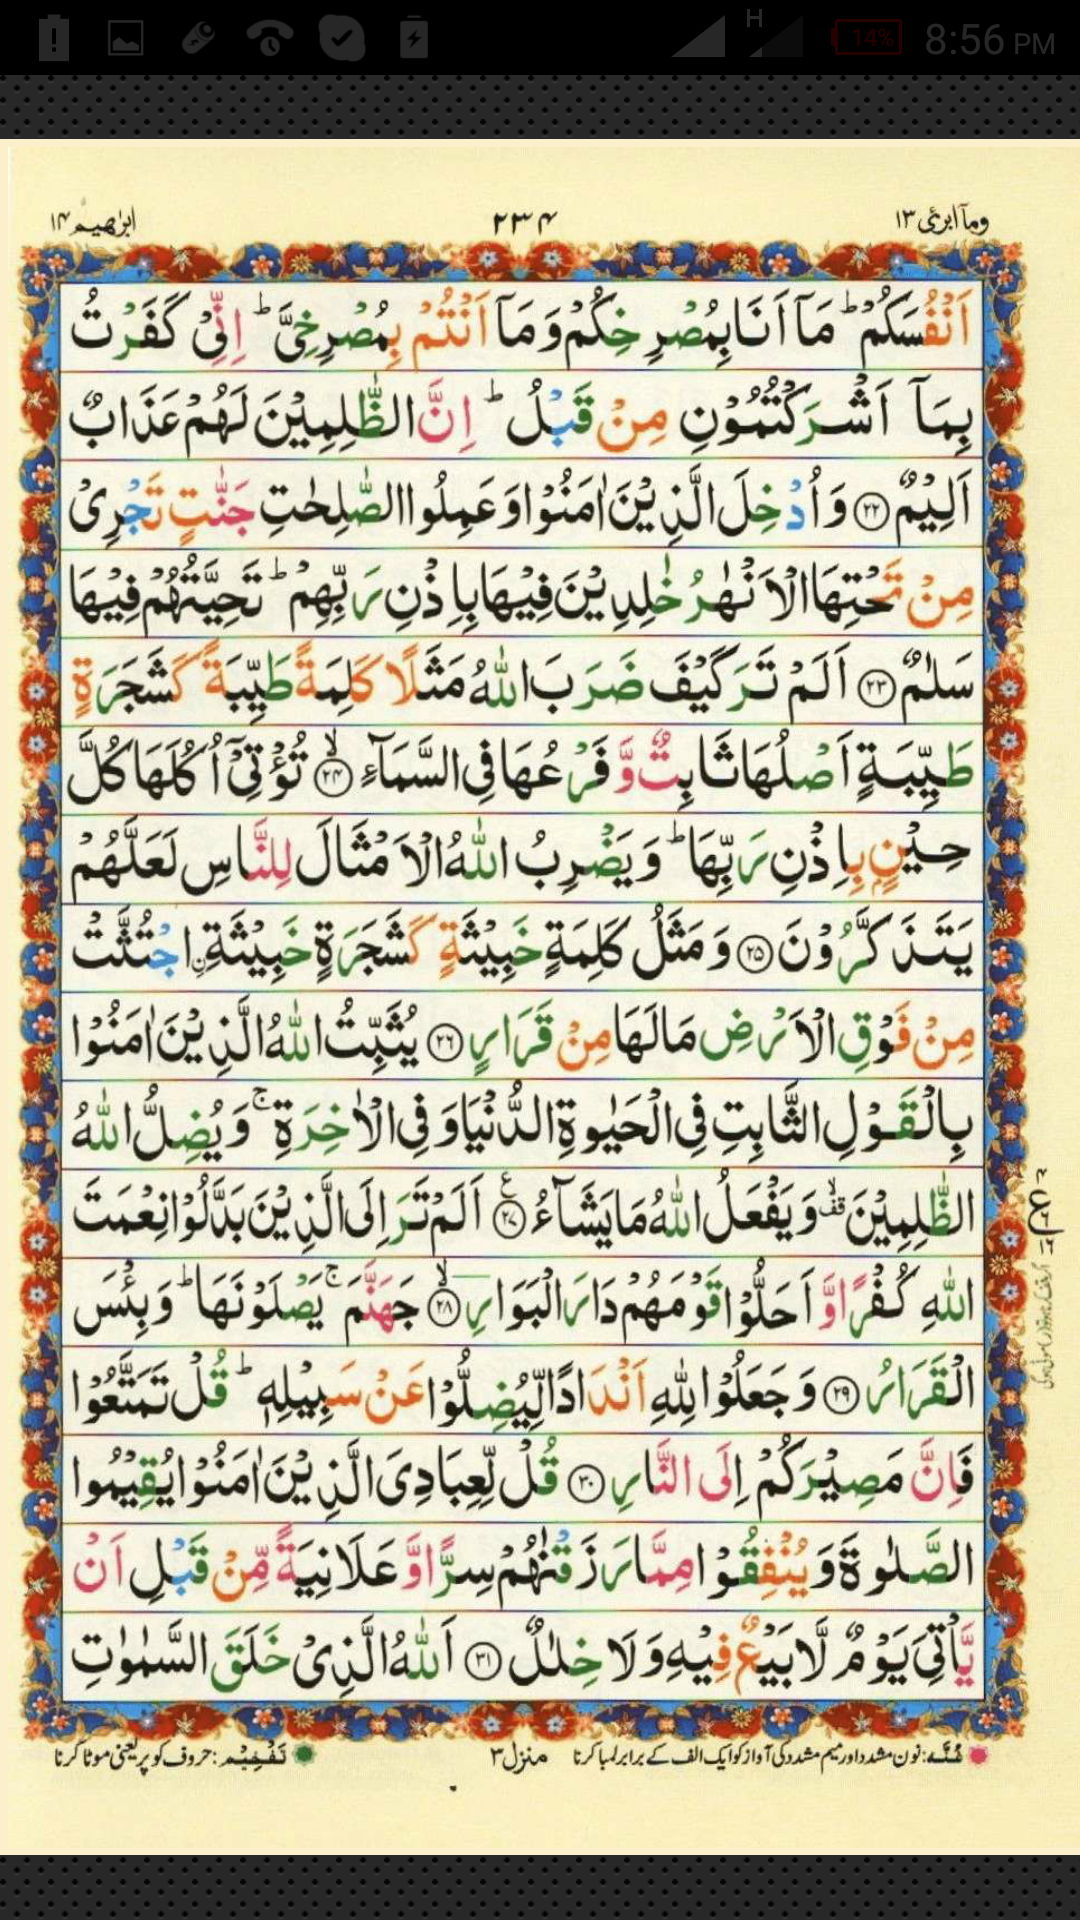 H 14% 8:56 PM
ومآ ابرئ ۱۳ ۲۳۴ ابرٰهیم ۱۴
اَنْفُسَكُمْ ؕ مَاۤ اَنَا بِمُصْرِخِكُمْ وَ مَاۤ اَنْتُمْ بِمُصْرِخِیَّ ؕ اِنِّیْ كَفَرْتُ
بِمَاۤ اَشْرَكْتُمُوْنِ مِنْ قَبْلُ ؕ اِنَّ الظّٰلِمِیْنَ لَهُمْ عَذَابٌ
اَلِیْمٌ ﴿۲۲﴾ وَ اُدْخِلَ الَّذِیْنَ اٰمَنُوْا وَ عَمِلُوا الصّٰلِحٰتِ جَنّٰتٍ تَجْرِیْ
مِنْ تَحْتِهَا الْاَنْهٰرُ خٰلِدِیْنَ فِیْهَا بِاِذْنِ رَبِّهِمْ ؕ تَحِیَّتُهُمْ فِیْهَا
سَلٰمٌ ﴿۲۳﴾ اَلَمْ تَرَ كَیْفَ ضَرَبَ اللّٰهُ مَثَلًا كَلِمَةً طَیِّبَةً كَشَجَرَةٍ
طَیِّبَةٍ اَصْلُهَا ثَابِتٌ وَّ فَرْعُهَا فِی السَّمَآءِ ﴿ۙ۲۴﴾ تُؤْتِیْۤ اُكُلَهَا كُلَّ
حِیْنٍۭ بِاِذْنِ رَبِّهَا ؕ وَ یَضْرِبُ اللّٰهُ الْاَمْثَالَ لِلنَّاسِ لَعَلَّهُمْ
یَتَذَكَّرُوْنَ ﴿۲۵﴾ وَ مَثَلُ كَلِمَةٍ خَبِیْثَةٍ كَشَجَرَةٍ خَبِیْثَةِ ِ۟اجْتُثَّتْ
مِنْ فَوْقِ الْاَرْضِ مَا لَهَا مِنْ قَرَارٍ ﴿۲۶﴾ یُثَبِّتُ اللّٰهُ الَّذِیْنَ اٰمَنُوْا
بِالْقَوْلِ الثَّابِتِ فِی الْحَیٰوةِ الدُّنْیَا وَ فِی الْاٰخِرَةِ ۚ وَ یُضِلُّ اللّٰهُ
الظّٰلِمِیْنَ ۙ۫ وَ یَفْعَلُ اللّٰهُ مَا یَشَآءُ ﴿۲۷﴾ ع اَلَمْ تَرَ اِلَی الَّذِیْنَ بَدَّلُوْا نِعْمَتَ
اللّٰهِ كُفْرًا وَّ اَحَلُّوْا قَوْمَهُمْ دَارَ الْبَوَارِ ﴿ۙ۲۸﴾ جَهَنَّمَ ۚ یَصْلَوْنَهَا ؕ وَ بِئْسَ
الْقَرَارُ ﴿۲۹﴾ وَ جَعَلُوْا لِلّٰهِ اَنْدَادًا لِّیُضِلُّوْا عَنْ سَبِیْلِهٖ ؕ قُلْ تَمَتَّعُوْا
فَاِنَّ مَصِیْرَكُمْ اِلَی النَّارِ ﴿۳۰﴾ قُلْ لِّعِبَادِیَ الَّذِیْنَ اٰمَنُوْا یُقِیْمُوا
الصَّلٰوةَ وَ یُنْفِقُوْا مِمَّا رَزَقْنٰهُمْ سِرًّا وَّ عَلَانِیَةً مِّنْ قَبْلِ اَنْ
یَّاْتِیَ یَوْمٌ لَّا بَیْعٌ فِیْهِ وَ لَا خِلٰلٌ ﴿۳۱﴾ اَللّٰهُ الَّذِیْ خَلَقَ السَّمٰوٰتِ
غُنَّه: نون مشدد اور میم مشدد کی آواز کو ایک الف کے برابر لمبا کرنا منزل ۳ تَفْخِیْم: حروف کو پُر یعنی موٹا کرنا